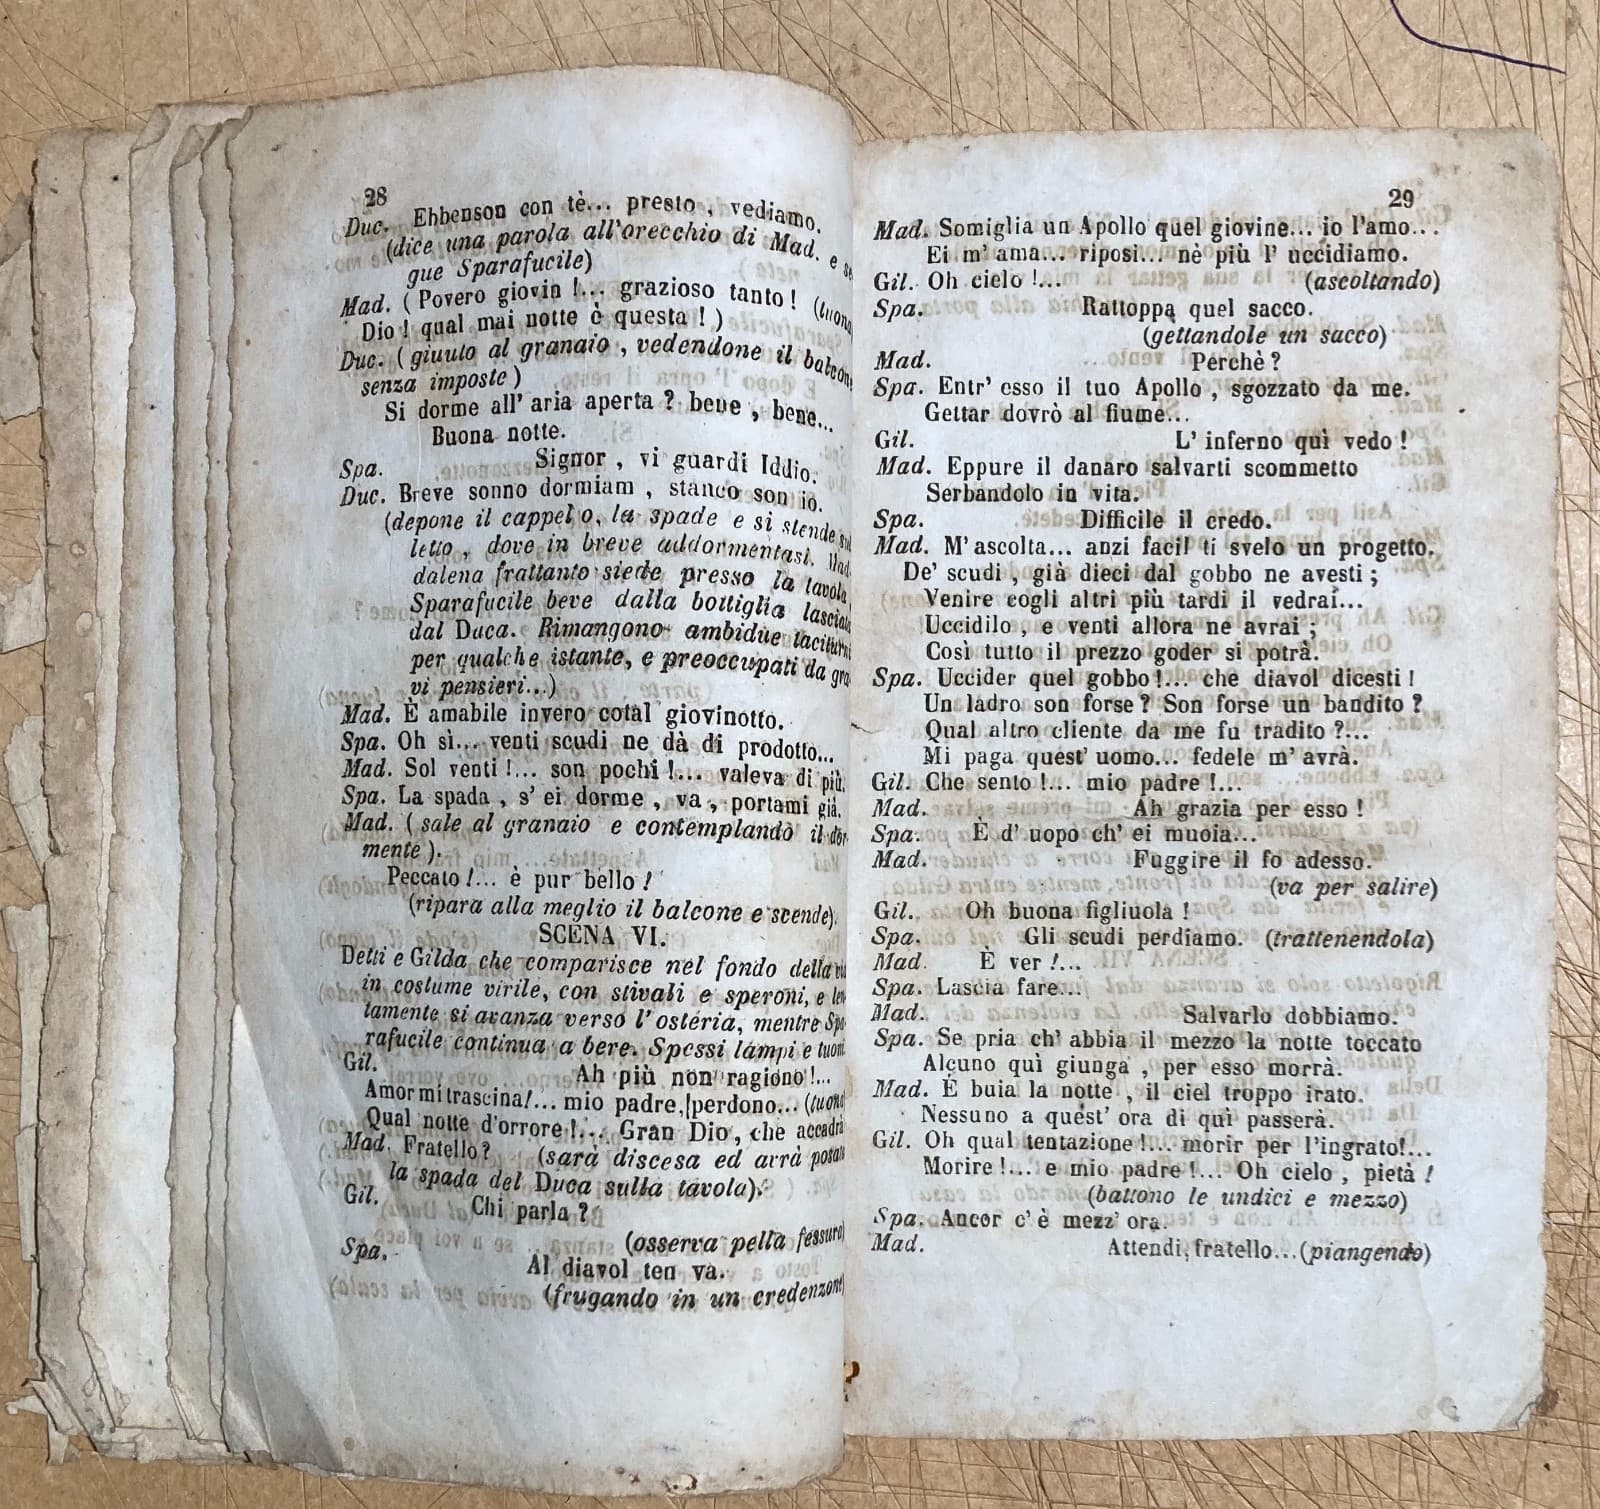 28
Duc. Ebbenson con tè... presto, vediamo.
(dice una parola all'orecchio di Mad. e se
gue Sparafucile)
Mad. (Povero giovin!... grazioso tanto! (tuona
Dio! qual mai notte è questa!)
Duc. (giunto al granaio, vedendone il balcone
senza imposte)
Si dorme all'aria aperta? bene, bene...
Buona notte.
Spa. Signor, vi guardi Iddio.
Duc. Breve sonno dormiam, stanco son io.
(depone il cappello, la spade e si stende sul
letto, dove in breve addormentasi. Mad
dalena frattanto siede presso la tavola.
Sparafucile beve dalla bottiglia lasciata
dal Duca. Rimangono ambidue taciturni
per qualche istante, e preoccupati da gra
vi pensieri...)
Mad. È amabile invero cotal giovinotto.
Spa. Oh sì... venti scudi ne dà di prodotto...
Mad. Sol venti!... son pochi!... valeva di più.
Spa. La spada, s'ei dorme, va, portami già.
Mad. (sale al granaio e contemplando il dor
mente).
Peccato!... è pur bello!
(ripara alla meglio il balcone e scende).
SCENA VI.
Detti e Gilda che comparisce nel fondo della via
in costume virile, con stivali e speroni, e len
tamente si avanza verso l'osteria, mentre Spa
rafucile continua a bere. Spessi lampi e tuoni
Gil. Ah più non ragiono!...
Amor mi trascina!... mio padre, perdono... (tuona
Qual notte d'orrore!... Gran Dio, che accadrà
Mad. Fratello? (sarà discesa ed avrà posato
la spada del Duca sulla tavola).
Gil. Chi parla?
(osserva pella fessura)
Spa. Al diavol ten va.
(frugando in un credenzone)
29
Mad. Somiglia un Apollo quel giovine... io l'amo...
Ei m'ama... riposi... nè più l'uccidiamo.
Gil. Oh cielo!... (ascoltando)
Spa. Rattoppa quel sacco.
(gettandole un sacco)
Mad. Perchè?
Spa. Entr'esso il tuo Apollo, sgozzato da me.
Gettar dovrò al fiume...
Gil. L'inferno quì vedo!
Mad. Eppure il danaro salvarti scommetto
Serbandolo in vita.
Spa. Difficile il credo.
Mad. M'ascolta... anzi facil ti svelo un progetto.
De' scudi, già dieci dal gobbo ne avesti;
Venire cogli altri più tardi il vedrai...
Uccidilo, e venti allora ne avrai;
Così tutto il prezzo goder si potrà.
Spa. Uccider quel gobbo!... che diavol dicesti!
Un ladro son forse? Son forse un bandito?
Qual altro cliente da me fu tradito?...
Mi paga quest'uomo... fedele m'avrà.
Gil. Che sento!... mio padre!...
Mad. Ah grazia per esso!
Spa. È d'uopo ch'ei muoia...
Mad. Fuggire il fo adesso.
(va per salire)
Gil. Oh buona figliuola!
Spa. Gli scudi perdiamo. (trattenendola)
Mad. È ver!...
Spa. Lascia fare...
Mad. Salvarlo dobbiamo.
Spa. Se pria ch'abbia il mezzo la notte toccato
Alcuno quì giunga, per esso morrà.
Mad. È buia la notte, il ciel troppo irato.
Nessuno a quest'ora di quì passerà.
Gil. Oh qual tentazione!... morir per l'ingrato!...
Morire!... e mio padre!... Oh cielo, pietà!
(battono le undici e mezzo)
Spa. Ancor c'è mezz'ora.
Mad. Attendi, fratello... (piangendo)